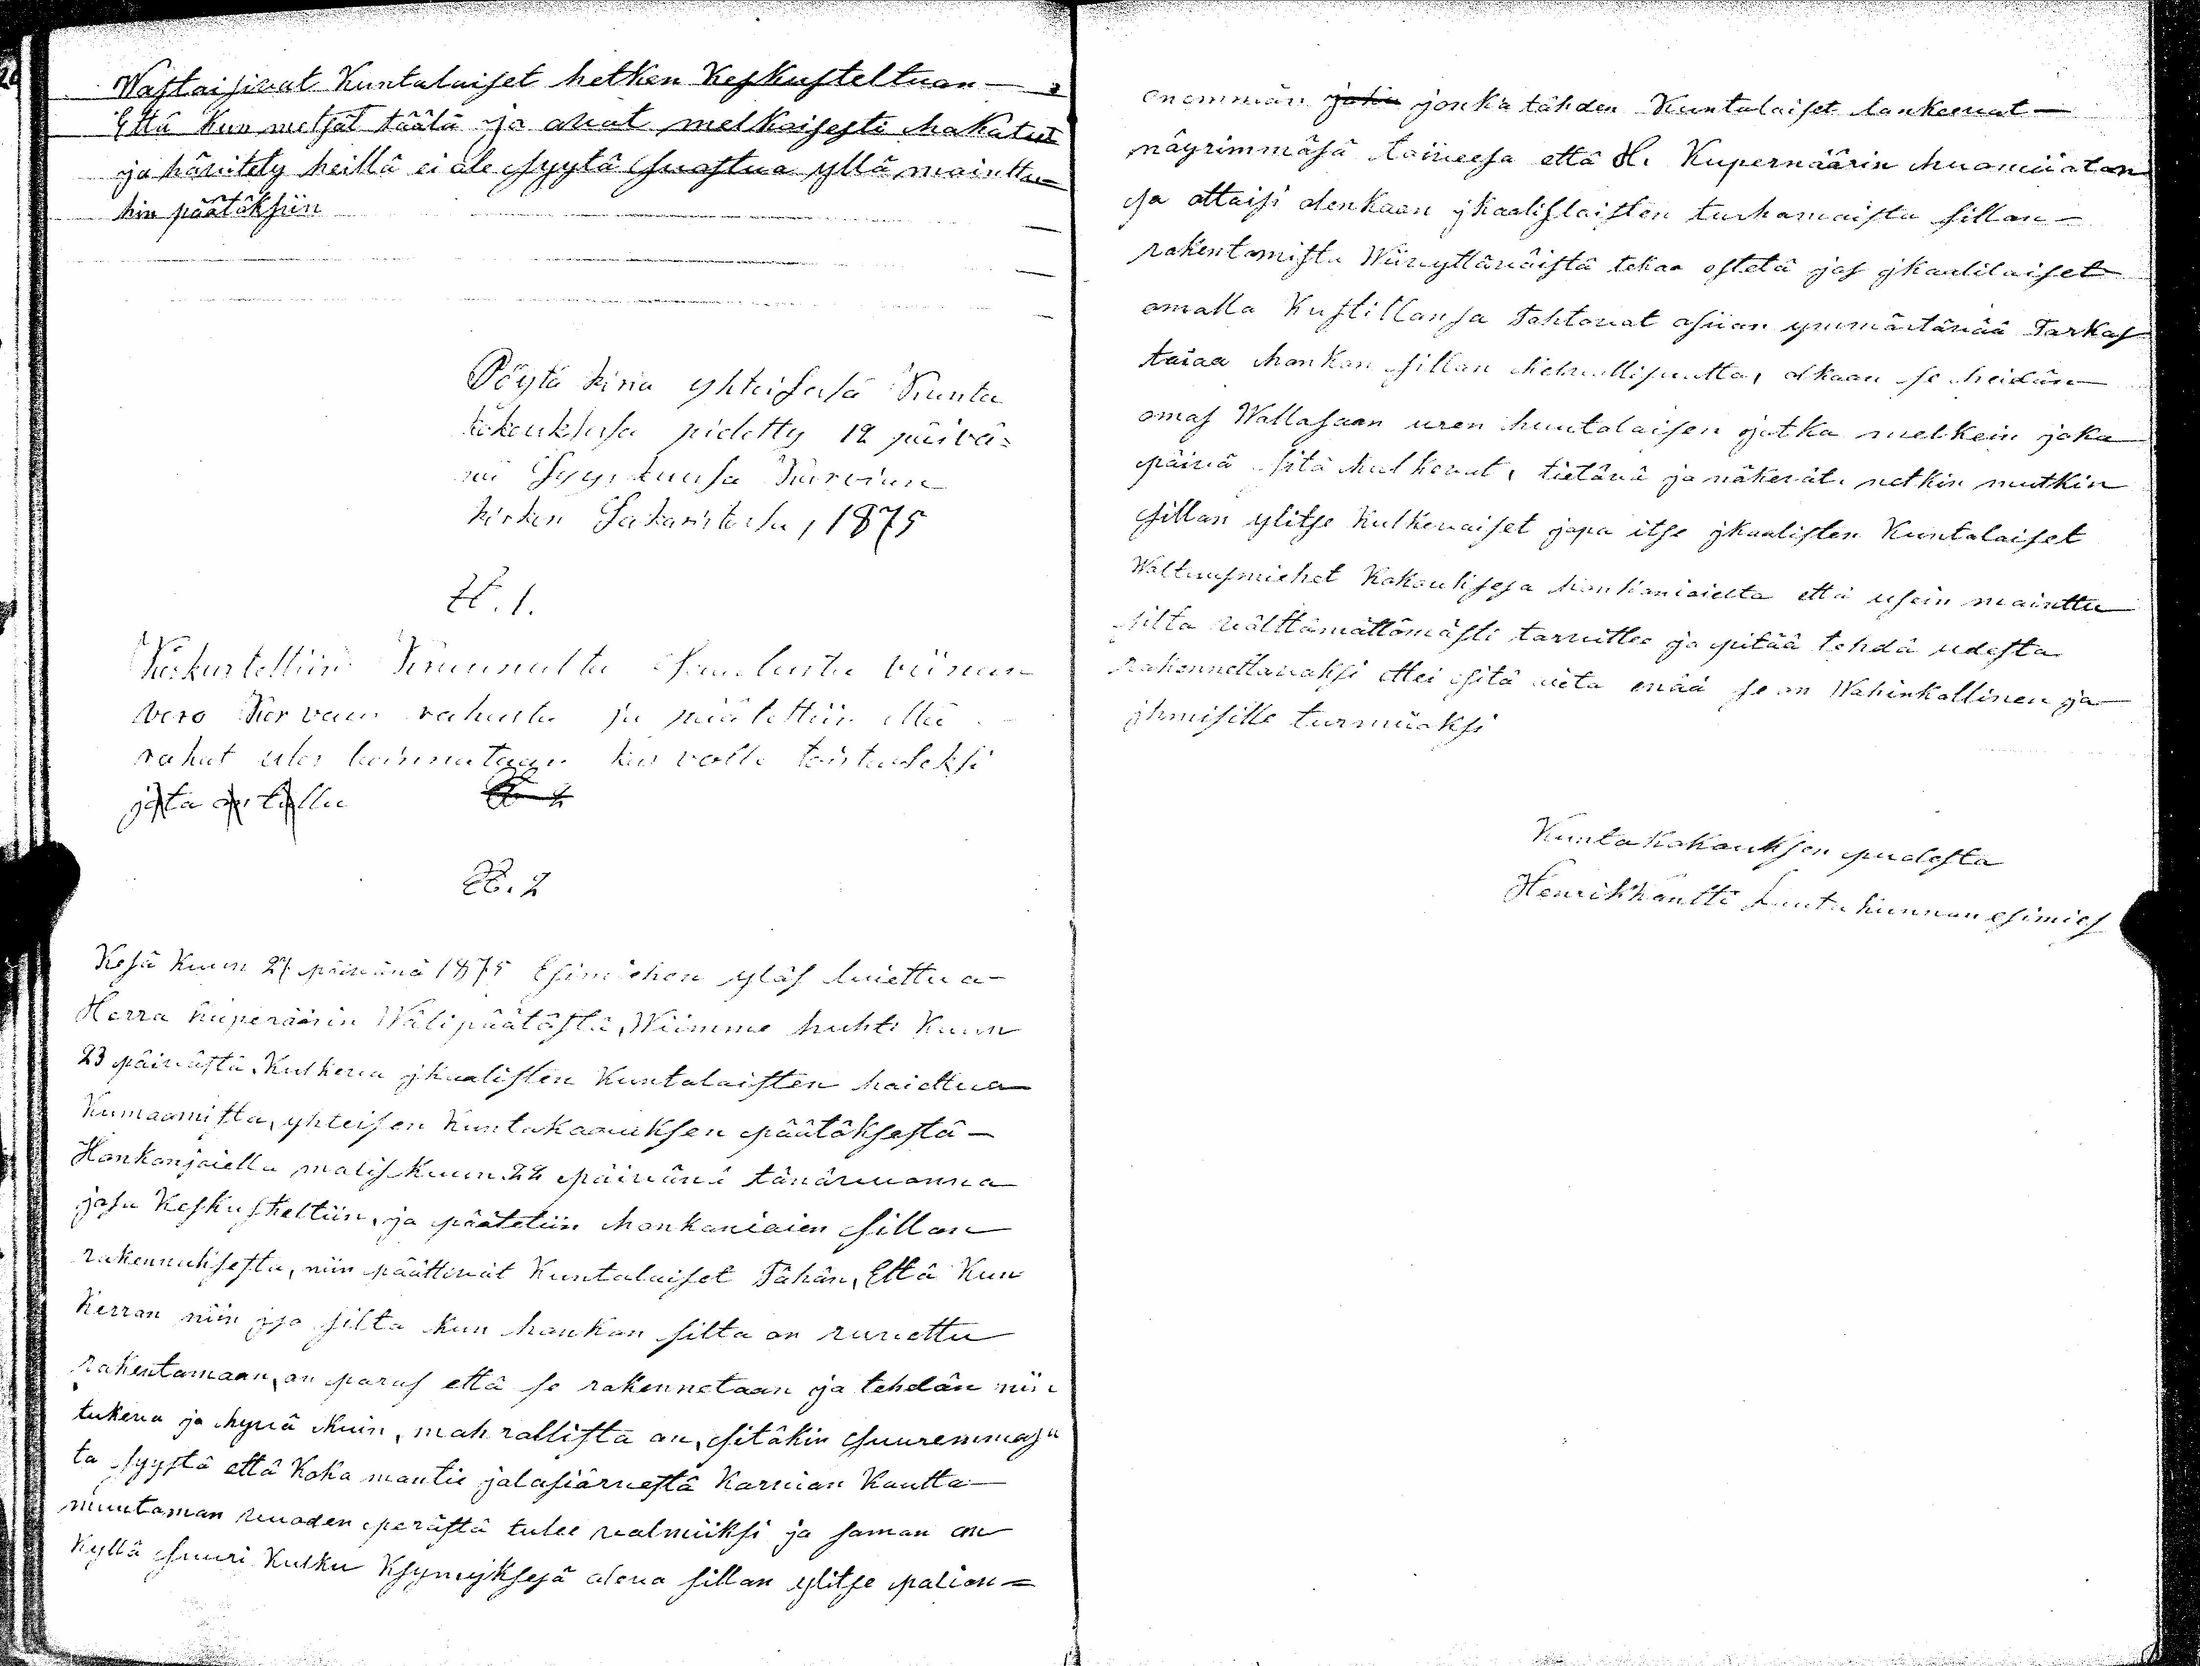 Wastaisivat Kuntalaiset hetken Keskusteltuan
Että Kun metsät täälä jo ovat melkoisesti hakatut
ja hävitety heillä ei ole syytä suostua yllä mainittu
hin päätöksiin
Pöytä kirja yhteisesä Kunta
kokouksesa pidetty 12 päivä=
nä Syys kuusa Karvian
kirkon Sakaristosa, 1875
§. 1.
Keskusteltiin Kruunulta saadusta viinan
vero Karvian rahasta ja päätettiin että
rahat ulos lainnataan kas volle toistaiseksi
§. 2
Kesä Kuun 27 päivänä 1875 Esimiehen yläs luettua
Herra Kuperäärin Wälipäätöstä, Wiimme huhti Kuun
23 päivästä. Kulkeva jkaalisten Kuntalaisten haiettua
Kumaamista, yhteisen Kuntakaouksen päätöksestä
Honkonjoiella malis Kuun 22 päivänä tänävuonna
josa Keskusteltiin, ja päätetiin honkanioien sillan
rakennuksesta, niin päättivät Kuntalaiset Tähän, Että Kun
Kerran niin iso silta kun honkon silta on ruvettu
rakentamaan, on paras että se rakennetaan ja tehdän niin
tukeva ja hyvä Kuin, mahrollista on, sitäkin suuremmasa
ta syystä että Koko mantie jalasiärvestä Karvian Kautta
muutaman vuoden perästä tulee valmiiksi ja saman on
Kyllä suuri Kulku Ksymyksesä oleva sillan ylitse palion=
enommän jonka tähden Kuntalaiset lankeevat
näyrimmäsä toiveesa että H. Kupernäärin huomiioton
sa ottaisi olenkaan jkaalislaisten turhamaista sillan
rakentamista Wiivyttäväistä tekaa ostetä jos jkaalilaiset
omalla Kustillansa Tahtovat asiian ymmärtävää Tarkas
taiaa honkon sillan kelvollisuutta, olkaan se heidän
omas Wallasaan uren huutalaisen jotka melkein joka
päivä sitä kulkevat, tietävä ja näkevät. netkin mutkin
sillan ylitse Kulkevaiset jopa itse jkaalisten Kuntalaiset
Waltuusmiehet Kokouksesa honkonioielta että usein mainittu
silta välttämättömästi tarvittee ja pitää tehdä udesta
rakennettavaksi ettei sitä vieta enää se on Wahinkollinen ja
jhmisille turmioksi
Kunta Kokouksen puolesta
Henrik häntti Lauta kunnan esimies